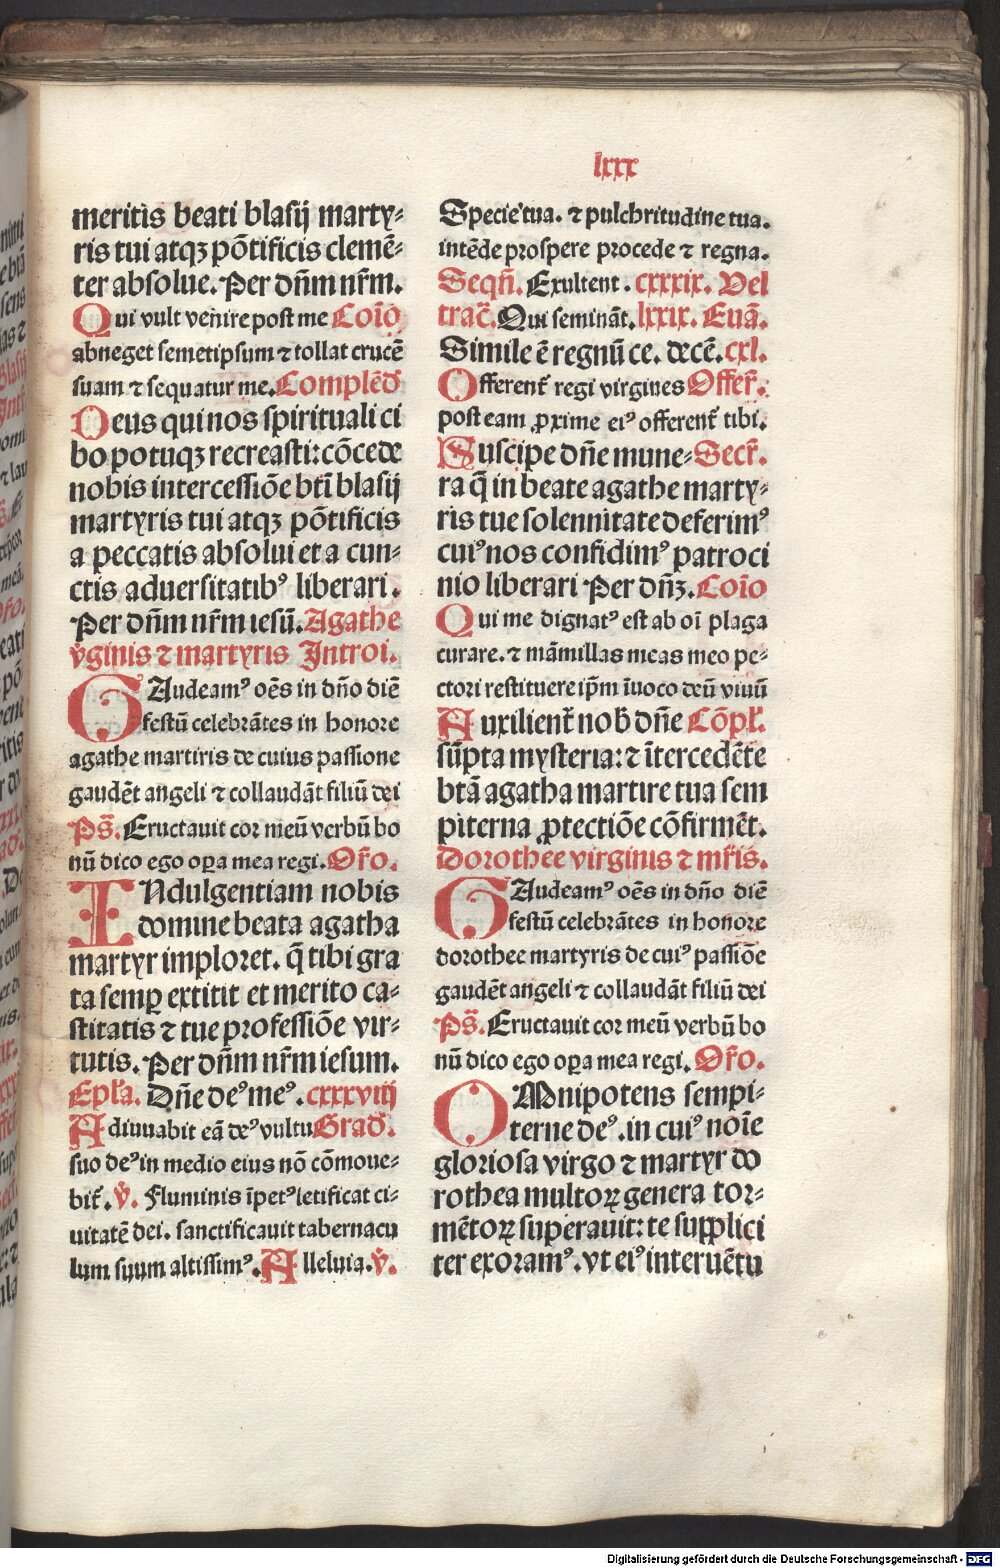 lxxx
meritis beati blasij marty⸗
ris tui atqꝫ põtificis clemẽ⸗
ter absolue. Per dñm nr̃m.
Qui vult venire post me Cõio
abneget semetipsum ⁊ tollat crucẽ
suam ⁊ sequatur me. Complẽd
Deus qui nos spirituali ci
bo potuqꝫ recreasti: cõcede
nobis intercessiõe btĩ blasij
martyris tui atqꝫ põtificis
a peccatis absolui et a cun⸗
ctis aduersitatibꝰ liberari.
Per dñm nr̃m iesũ. Agathe
v̾ginis ⁊ martyris Introi.
GAudeamꝰ oẽs in dño diẽ
festũ celebrãtes in honore
agathe martiris de cuius passione
gaudẽt angeli ⁊ collaudãt filiũ dei
Ps̃. Eructauit cor meũ verbũ bo
nũ dico ego oꝑa mea regi. Or̃o.
INdulgentiam nobis
domine beata agatha
martyr imploret. q̃ tibi gra
ta semꝑ extitit et merito ca⸗
stitatis ⁊ tue professiõe vir⸗
tutis. Per dñm nr̃m iesum.
Epl̃a. Dñe deꝰ meꝰ. cxxxviij
Adiuuabit eã deꝰ vultu Grad̃.
suo deꝰ in medio eius nõ cõmoue⸗
bit̃. v̾. Fluminis ĩpetꝰ letificat ci⸗
uitatẽ dei. sanctificauit tabernacu
lum suum altissimꝰ. Alleluia. v̾.
Specie tua. ⁊ pulchritudine tua.
intẽde prospere procede ⁊ regna.
Seqñ. Exultent. cxxxix. Vel
trac̃. Qui seminãt. lxxix. Euã.
Simile ẽ regnũ ce. decẽ. cxl.
Offerent̃ regi virgines Offer̃.
post eam ꝓxime eiꝰ offerent̃ tibi.
Suscipe dñe mune⸗ Secr̃.
ra q̃ in beate agathe marty⸗
ris tue solennitate deferimꝰ
cuiꝰ nos confidimꝰ patroci
nio liberari Per dñꝫ. Cõio
Qui me dignatꝰ est ab oĩ plaga
curare. ⁊ mãmillas meas meo pe⸗
ctori restituere ip̃m ĩuoco deũ viuũ
Auxilient̃ nob̃ dñe Cõpl̃.
sũpta mysteria: ⁊ ĩtercedẽte
btã agatha martire tua sem
piterna ꝓtectiõe cõfirmẽt.
Dorothee virginis ⁊ mr̃is.
GAudeamꝰ oẽs in dño diẽ
festũ celebrãtes in honore
dorothee martyris de cuiꝰ passiõe
gaudẽt angeli ⁊ collaudãt filiũ dei
Ps̃. Eructauit cor meũ verbũ bo
nũ dico ego oꝑa mea regi. Or̃o.
OMnipotens sempi⸗
terne deꝰ. in cuiꝰ noĩe
gloriosa virgo ⁊ martyr do
rothea multoꝝ genera tor⸗
mẽtoꝝ superauit: te supplici
ter exoramꝰ. vt eiꝰ interuẽtu
Digitalisierung gefördert durch die Deutsche Forschungsgemeinschaft - DFG